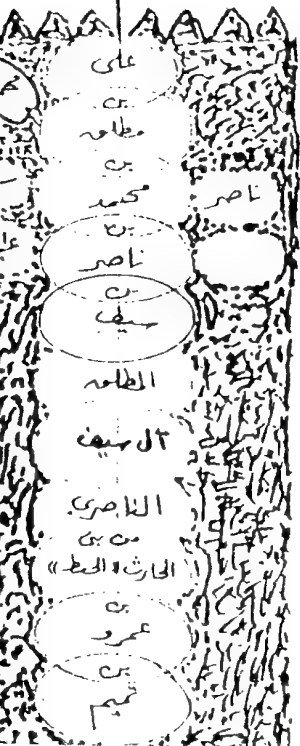 علي
بن
مطلق
بن
محمد
ناصر
بن
ناصر
بن
سيف
المطلق
آل سيف
الناصري
من بني
الحارث «الحبط»
بن
عمرو
بن
تميم